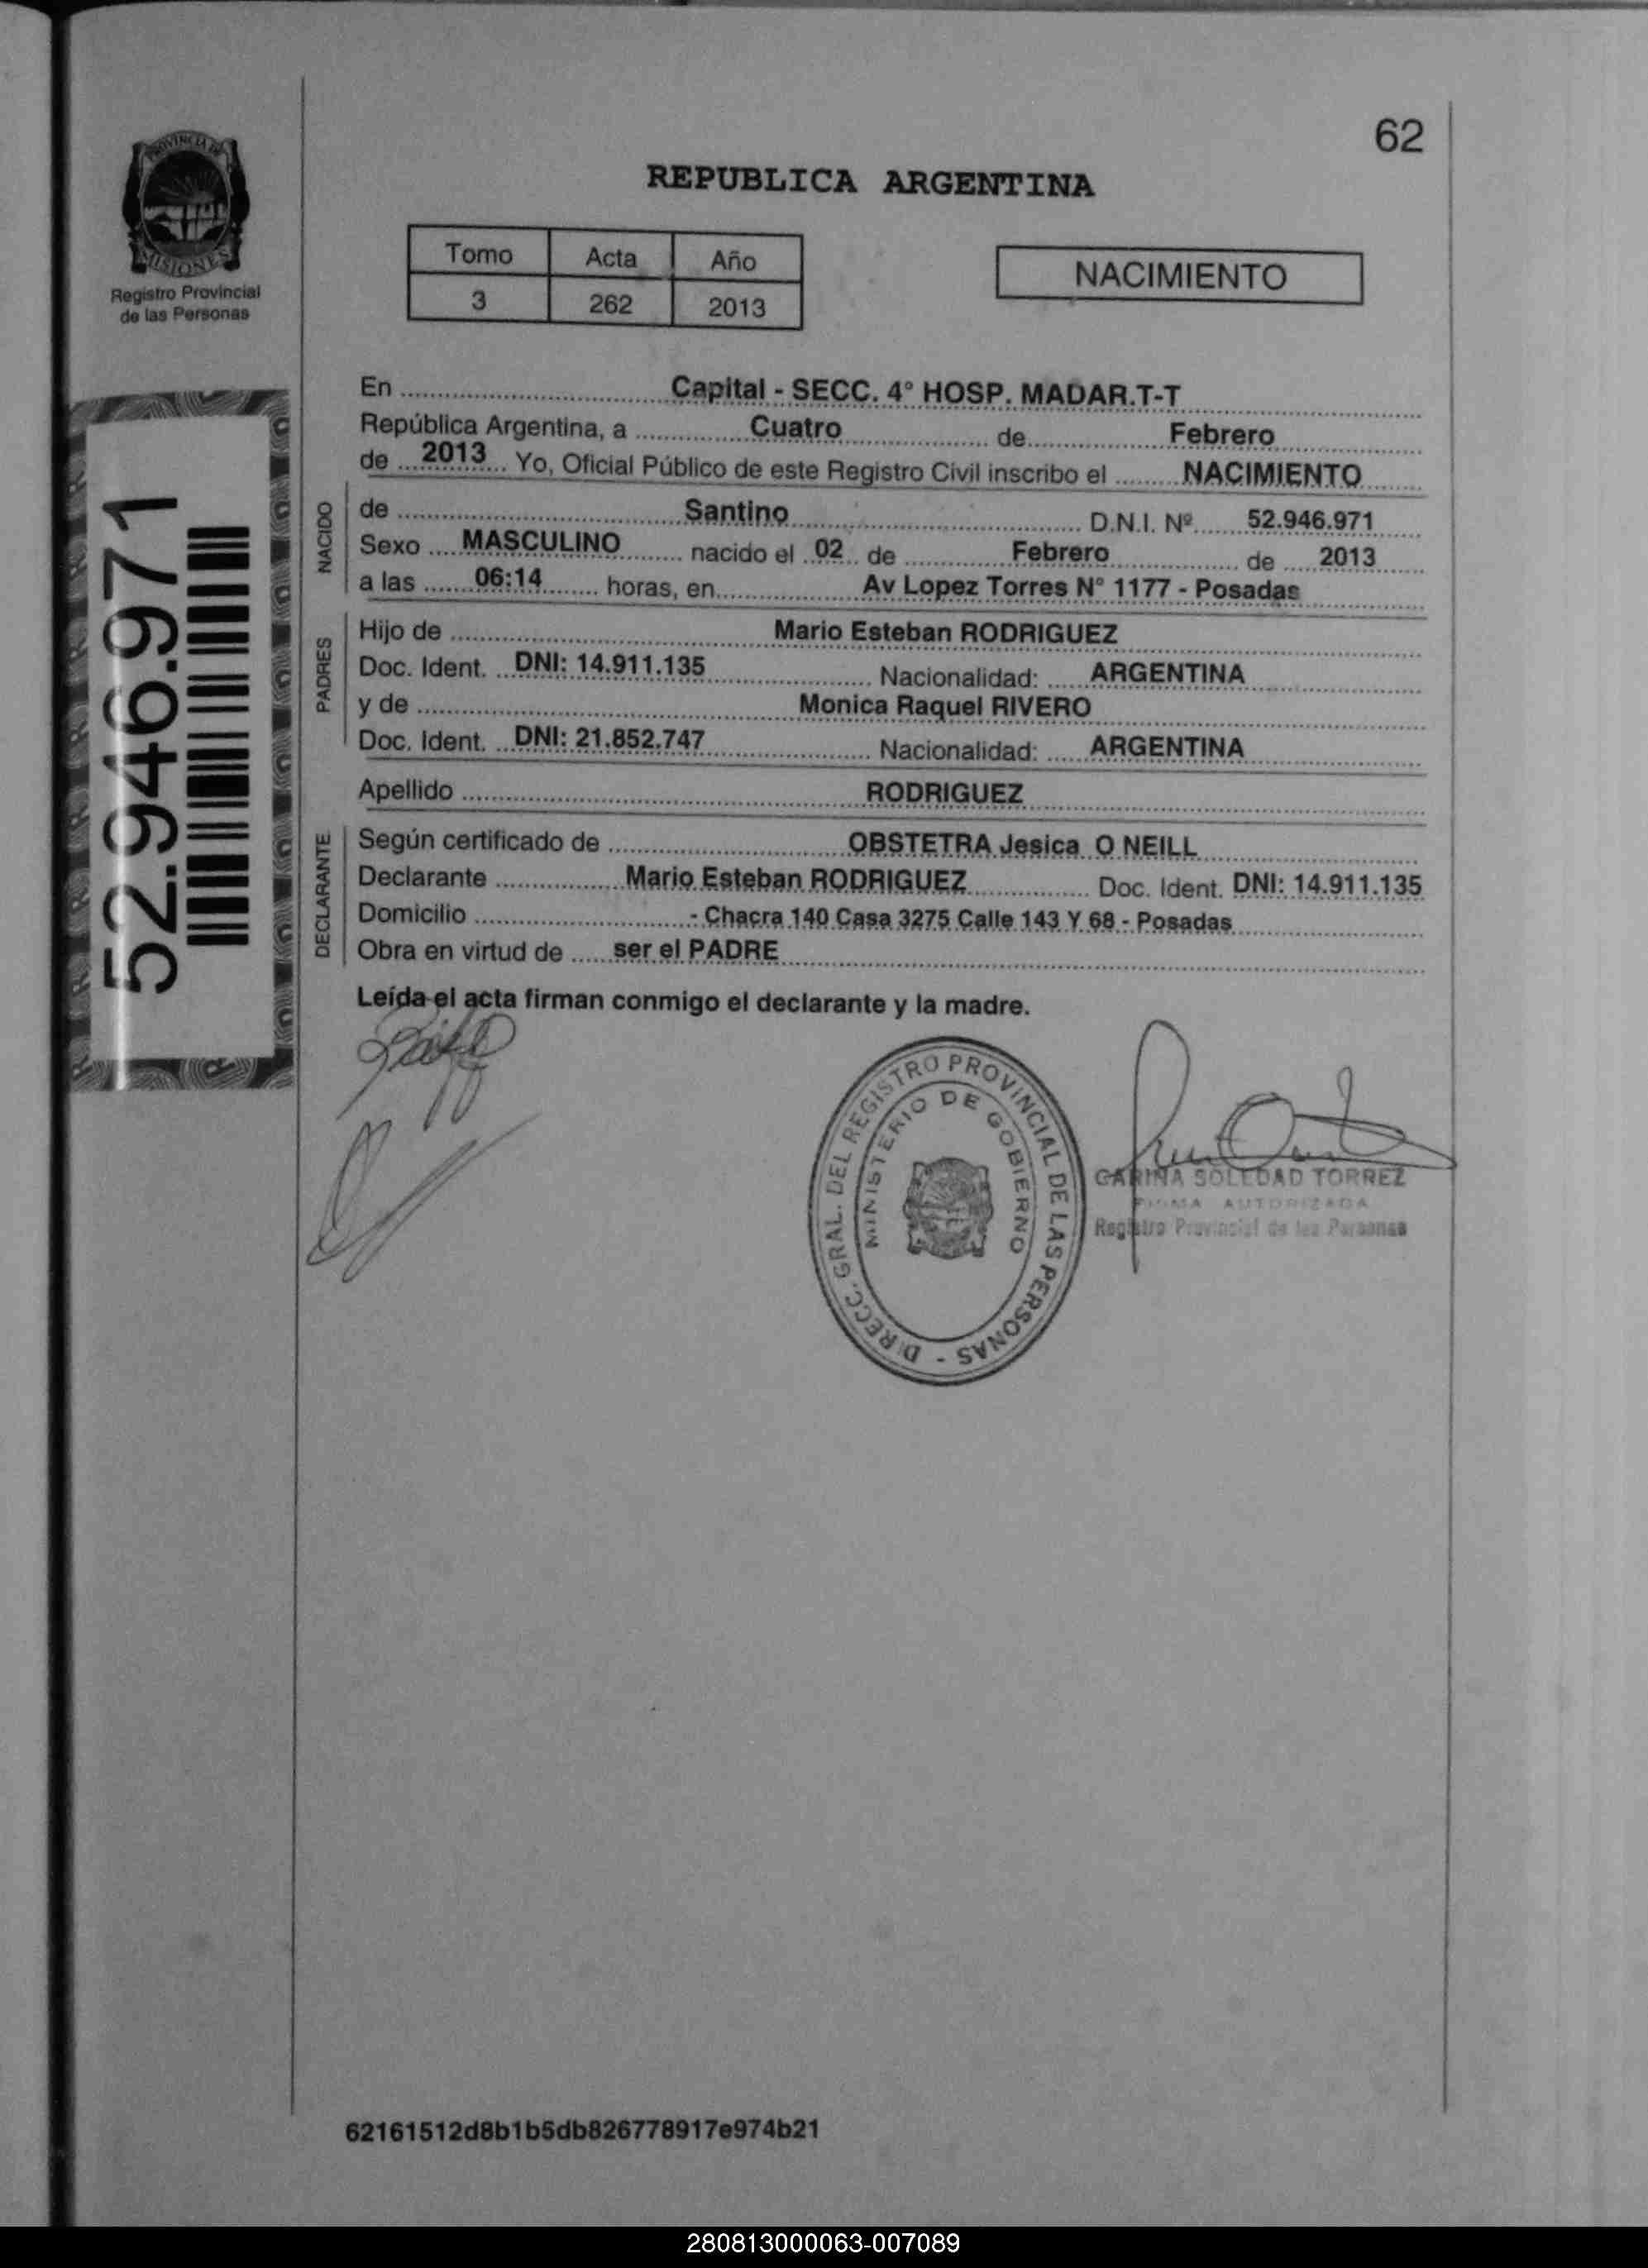 62
PROVINCIA DE
MISIONES
Registro Provincial
de las Personas
REPUBLICA ARGENTINA
Tomo Acta Año
3 262 2013
NACIMIENTO
52.946.971
En Capital - SECC. 4° HOSP. MADAR.T-T
República Argentina, a Cuatro de Febrero
de 2013 Yo, Oficial Público de este Registro Civil inscribo el NACIMIENTO
NACIDO
de Santino D.N.I. Nº 52.946.971
Sexo MASCULINO nacido el 02 de Febrero de 2013
a las 06:14 horas, en Av Lopez Torres N° 1177 - Posadas
PADRES
Hijo de Mario Esteban RODRIGUEZ
Doc. Ident. DNI: 14.911.135 Nacionalidad: ARGENTINA
y de Monica Raquel RIVERO
Doc. Ident. DNI: 21.852.747 Nacionalidad: ARGENTINA
Apellido RODRIGUEZ
DECLARANTE
Según certificado de OBSTETRA Jesica O NEILL
Declarante Mario Esteban RODRIGUEZ Doc. Ident. DNI: 14.911.135
Domicilio - Chacra 140 Casa 3275 Calle 143 Y 68 - Posadas
Obra en virtud de ser el PADRE
Leída el acta firman conmigo el declarante y la madre.
DIRECC. GRAL. DEL REGISTRO PROVINCIAL DE LAS PERSONAS -
MINISTERIO DE GOBIERNO
CARINA SOLEDAD TORREZ
FIRMA AUTORIZADA
Registro Provincial de las Personas
62161512d8b1b5db826778917e974b21
280813000063-007089